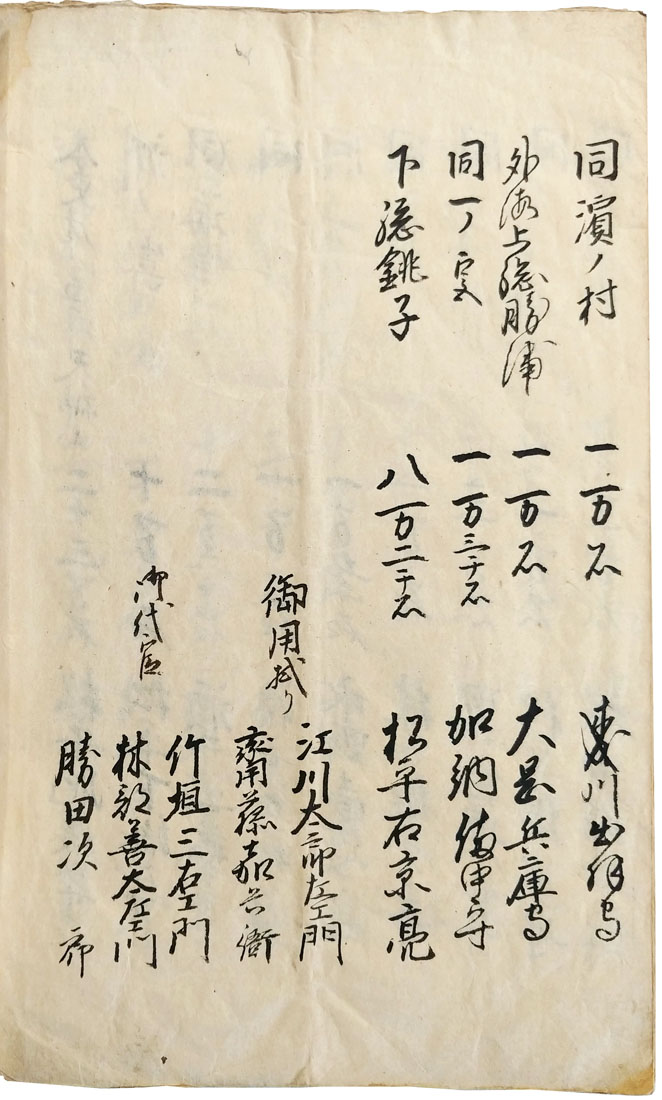 同濱ノ村 一万石 森川出羽守
外海上総勝浦 一万石 大岡兵庫守
同一ノ宮 一万三千石 加納備中守
下総銚子 八万二千石 松平右京亮
御用 江川太郎左エ門
藤嘉兵衛
竹垣三右エ門
御代官 林部善太左エ門
勝田次郎